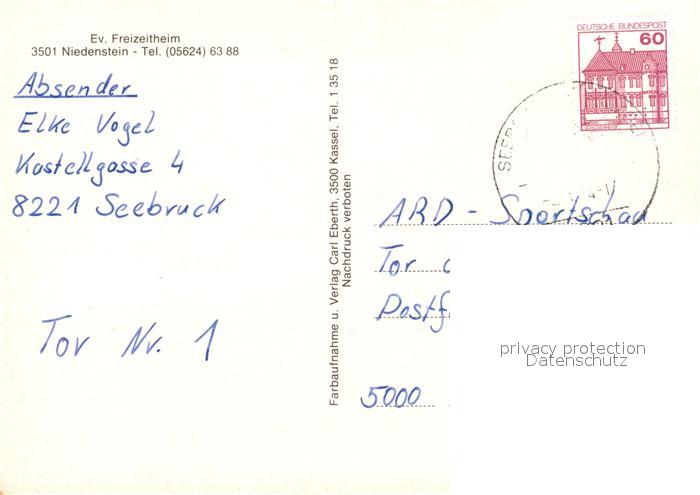 Ev. Freizeitheim
3501 Niedenstein - Tel. (05624) 63 88
Absender
Elke Vogel
Kastellgasse 4
8221 Seebruck
Tor Nr. 1
Farbaufnahme u. Verlag Carl Eberth, 3500 Kassel, Tel. 1 35 18
Nachdruck verboten
DEUTSCHE BUNDESPOST
60
ARD - Sportschau
Tor
Postf
5000
privacy protection
Datenschutz